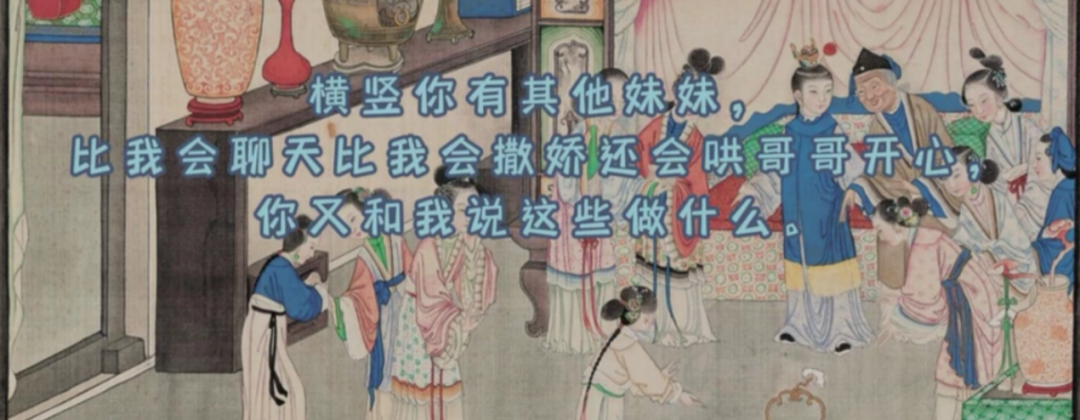 横竖你有其他妹妹，
比我会聊天比我会撒娇还会哄哥哥开心，
你又和我说这些做什么。